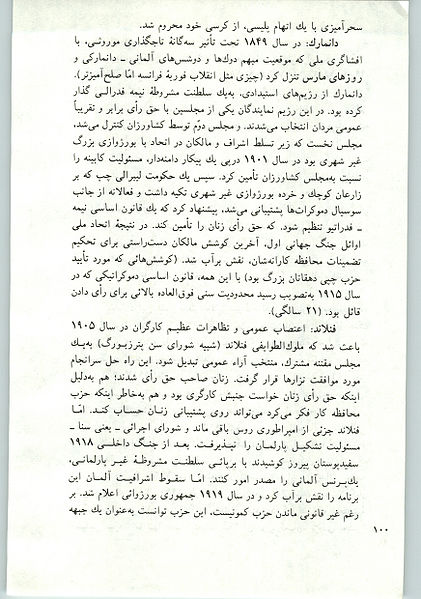 سحرآمیزی با یك اتهام پلیسی، از کرسی خود محروم شد.
دانمارك: در سال ۱۸۴۹ تحت تأثیر سه‌گانهٔ تاجگذاری موروثی، با
افشاگری ملی که موقعیت مبهم دوك‌ها و دوشس‌های آلمانی ـ دانمارکی و
روزهای مارس تنزل کرد (چیزی مثل انقلاب فوریهٔ فرانسه امّا صلح‌آمیزتر).
دانمارك از رژیم‌های استبدادی، به‌یك سلطنت مشروطهٔ نیمه فدرالی گذار
کرده بود. در این رژیم نمایندگان یکی از مجلسین با حق رأی برابر و تقریباً
عمومی مردان انتخاب می‌شدند. و مجلس دوّم توسط کشاورزان کنترل می‌شد،
مجلس نخست که زیر تسلط اشراف و مالکان در اتحاد با بورژوازی بزرگ
غیر شهری بود در سال ۱۹۰۱ درپی یك پیکار دامنه‌دار، مسئولیت کابینه را
نسبت به‌مجلس کشاورزان تأمین کرد. سپس یك حکومت لیبرالی چپ که بر
زارعان کوچك و خرده بورژوازی غیر شهری تکیه داشت و فعالانه از جانب
سوسیال دموکرات‌ها پشتیبانی می‌شد، پیشنهاد کرد که یك قانون اساسی نیمه
ـ قدراتیو تنظیم شود. که حق رأی زنان را تأمین کند. در نتیجهٔ اتحاد ملی
اوائل جنگ جهانی اول، آخرین کوشش مالکان دست‌راستی برای تحکیم
تضمینات محافظه کارانه‌شان، نقش برآب شد. (کوشش‌هائی که مورد تأیید
حزب چپی دهقانان بزرگ بود) با این همه، قانون اساسی دموکراتیکی که در
سال ۱۹۱۵ به‌تصویب رسید محدودیت سنی فوق‌العاده بالائی برای رأی دادن
قائل بود. (۲۱ سالگی).
فنلاند: اعتصاب عمومی و تظاهرات عظیم کارگران در سال ۱۹۰۵
باعث شد که ملوك‌الطوایفی فنلاند (شبیه شورای سن پترزبورگ) به‌یك
مجلس مقننه مشترك، منتخب آراء عمومی تبدیل شود. این راه حل سرانجام
مورد موافقت تزارها قرار گرفت. زنان صاحب حق رأی شدند؛ هم به‌دلیل
اینکه حق رأی زنان خواست جنبش کارگری بود و هم به‌خاطر اینکه حزب
محافظه کار فکر می‌کرد می‌تواند روی پشتیبانی زنان حساب کند. امّا
فنلاند جزئی از امپراطوری روس باقی ماند و شورای اجرائی ـ یعنی سنا ـ
مسئولیت تشکیل پارلمان را نپذیرفت. بعد از جنگ داخلی ۱۹۱۸
سفیدپوستان پیروز کوشیدند با برپائی سلطنت مشروطهٔ غیر پارلمانی،
یك‌پرنس آلمانی را مصدر امور کنند. امّا سقوط اشرافیت آلمان این
برنامه را نقش برآب کرد و در سال ۱۹۱۹ جمهوری بورژوائی اعلام شد. بر
رغم غیر قانونی ماندن حزب کمونیست، این حزب توانست به‌عنوان یك جبهه
۱۰۰